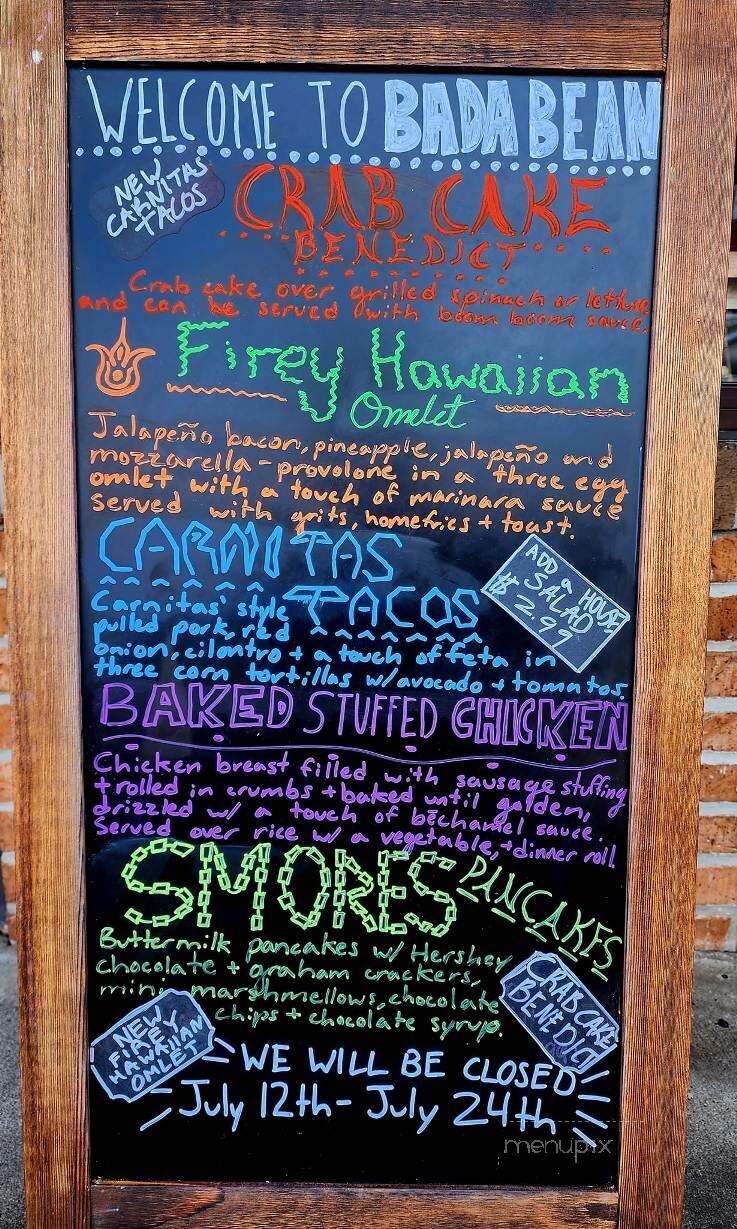 WELCOME TO BADA BEAN
NEW
CARNITAS
TACOS
CRAB CAKE
BENEDICT
Crab cake over grilled spinach or lettuce
and can be served with boom boom sauce.
Firey Hawaiian
Omlet
Jalapeño bacon, pineapple, jalapeño and
mozzarella - provolone in a three egg
omlet with a touch of marinara sauce
served with grits, homefries + toast.
CARNITAS
TACOS
ADD a HOUSE
SALAD
$2.99
Carnitas' style
pulled pork, red
onion, cilantro + a touch of feta in
three corn tortillas w/avocado + tomatos.
BAKED STUFFED CHICKEN
Chicken breast filled with sausage stuffing
+ rolled in crumbs + baked until golden,
drizzled w/ a touch of béchamel sauce.
Served over rice w/ a vegetable, + dinner roll.
SMORES PANCAKES
Buttermilk pancakes w/ Hershey
chocolate + graham crackers,
mini marshmellows, chocolate
chips + chocolate syrup.
CRAB CAKE
BENEDICT
NEW
FIREY
HAWAIIAN
OMLET
WE WILL BE CLOSED
July 12th - July 24th
menupix